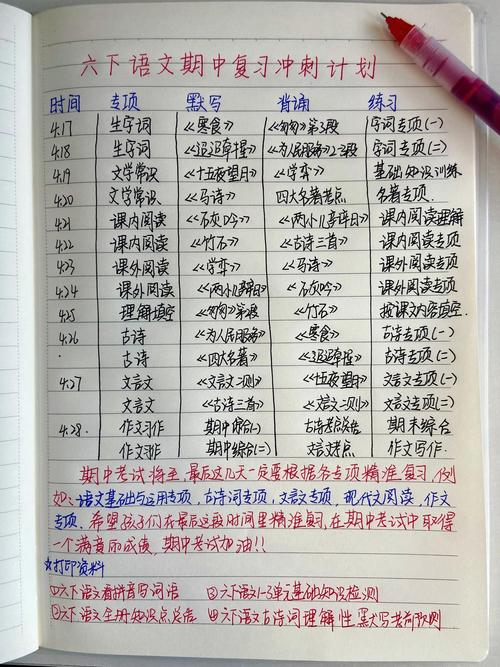 六下语文期中复习冲刺计划
时间 专项 默写 背诵 练习
4.17 生字词 《寒食》 《匆匆》第3段 字词专项(一)
4.18 生字词 《迢迢牵牛星》 《为人民服务》2-3段 字词专项(二)
4.19 文学常识 《十五夜望月》 《学弈》 基础知识训练
4.20 文学常识 《马诗》 四大名著考点 名著专项
4.21 课内阅读 《石灰吟》 《两小儿辩日》 课内阅读理解
4.22 课内阅读 《竹石》 《古诗三首》 课内阅读专项
4.23 课外阅读 《学弈》 《马诗》 课外阅读专项
4.24 课外阅读 《两小儿辩日》 《石灰吟》 课外阅读专项
4.25 理解填空 《匆匆》第3段 《竹石》 按课文内容填空
4.26 古诗 《为人民服务》 《寒食》 古诗专项(一)
古诗 《四大名著》 《迢迢牵牛星》 古诗专项(二)
4.27 文言文 《文言文二则》 《十五夜望月》 文言文专项(一)
文言文 《古诗三首》 《文言文二则》 文言文专项(二)
4.28. 作文习作 期中综合(一) 古诗考点总结 期末综合
作文习作 期中综合(二) 文言文考点 作文写作.
期中考试将至,最后这几天一定要根据各专项精准复习,例
如:语文基础与运用专项,古诗词专项,文言文专项,现代文阅读,作文
专项.希望孩子们在最后这段时间里精准复习,在期中考试中取得
一个满意的成绩,期中考试加油!!
☆打印资料
①六下语文看拼音写词语 ③六下语文1-3单元基础知识检测
②六下语文全册知识点总结 ④六下语文古诗词理解性默写考前预测